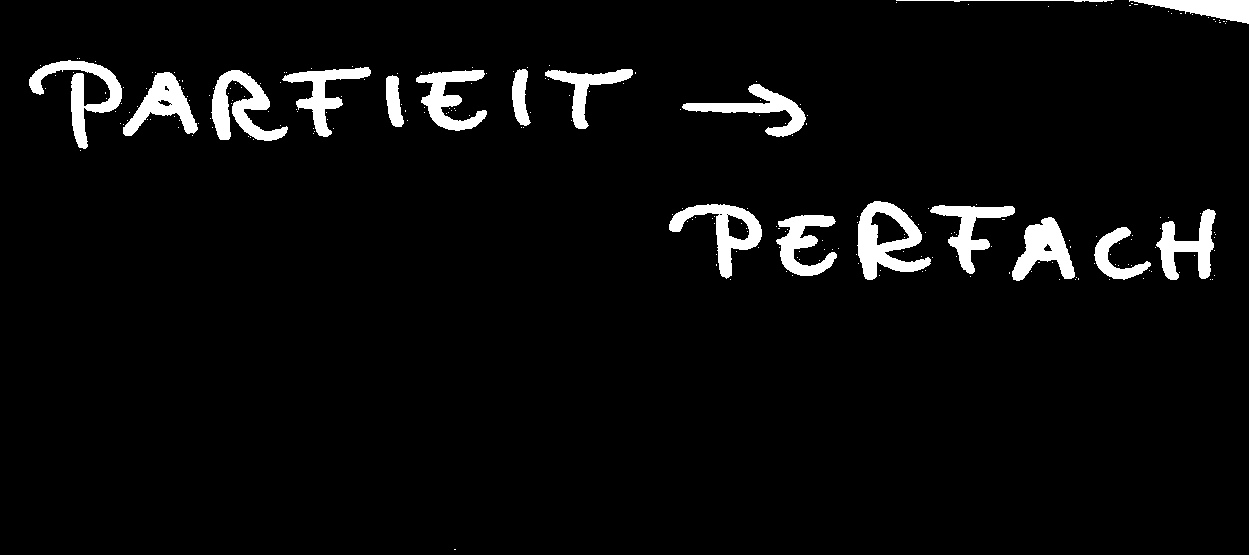 PARFIEIT →
PERFACH